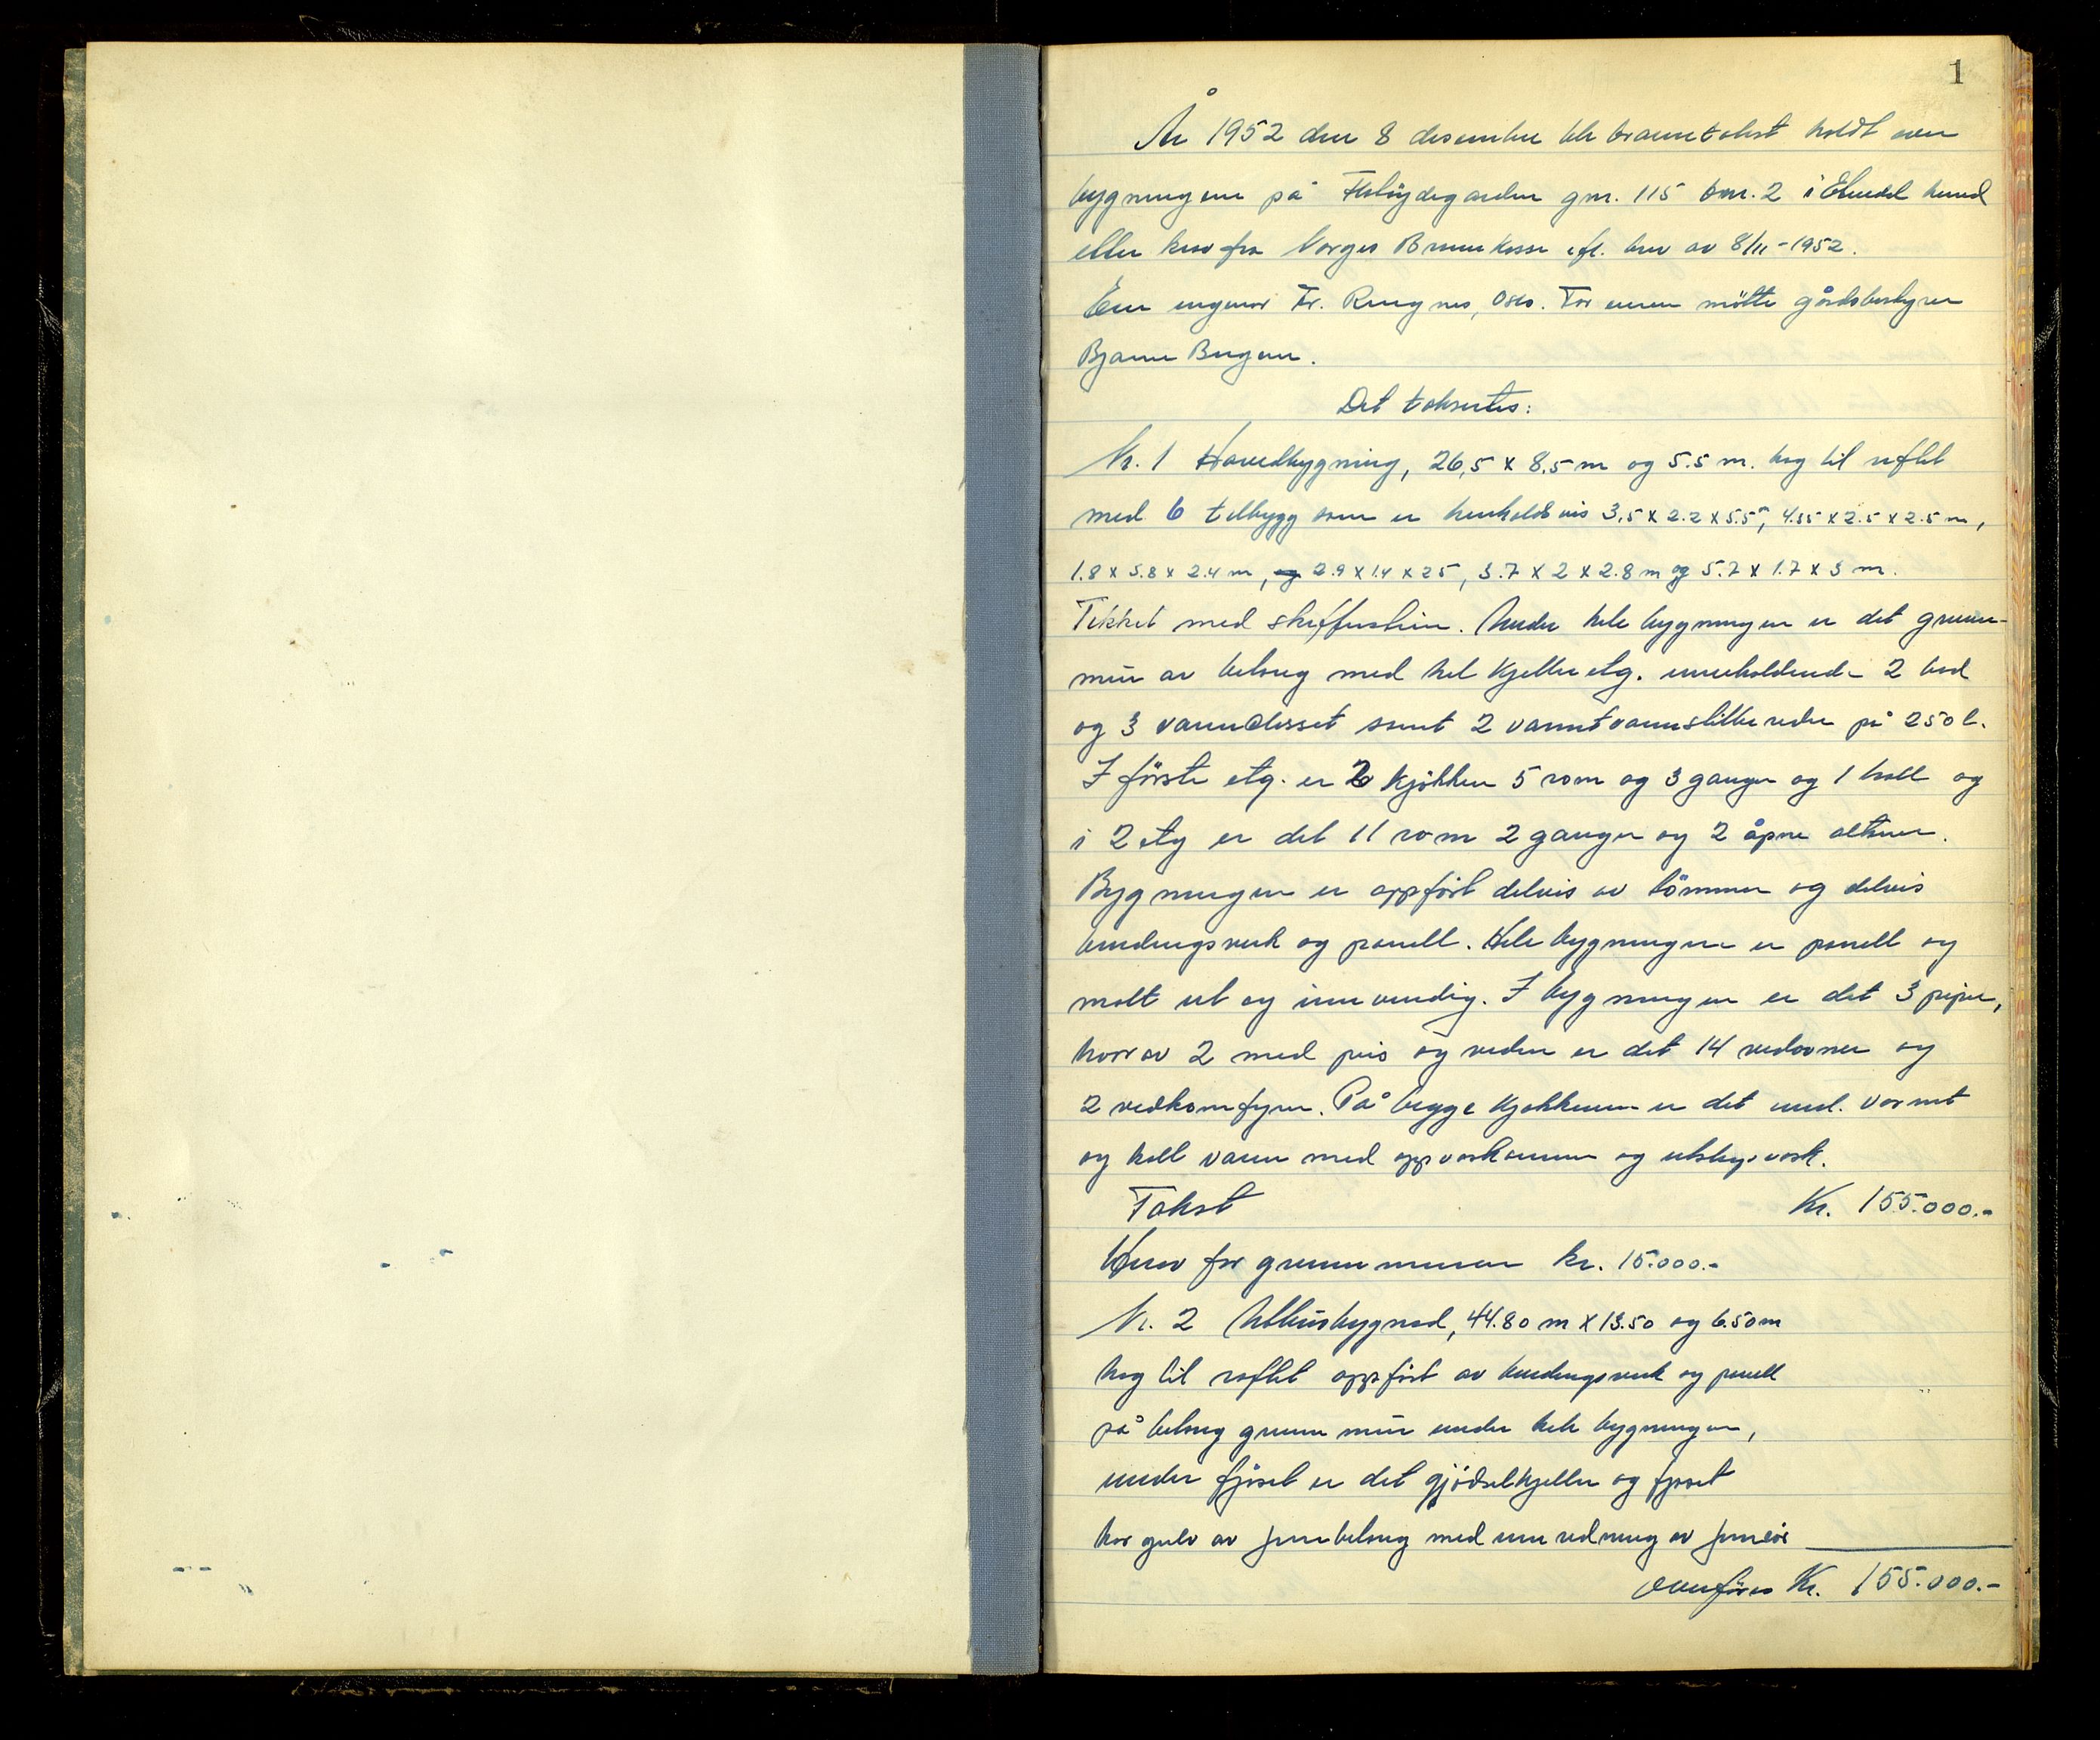 1
År 1952 den 8 desember ble branntakst holdt over
bygningene på gnr. 115 bnr. 2 i Etnedal herred
etter krav fra Norges Brannkasse ifl. brev av 8/11-1952.
Eier ingeniør Fr. Ringnes, Oslo. For eieren møtte gårdsbestyrer
Bjarne Bergene.
Det taksertes:
Nr. 1 Hovedbygning, 26,5 x 8,5 m og 5.5 m. høg til raftet
med 6 tilbygg som er henholdsvis 3,5 x 2.2 x 5.5 m, 4.55 x 2.5 x 2.5 m,
1.8 x 5.8 x 2.4 m, 2.9 x 1.4 x 25, 3.7 x 2 x 2.8 m og 5.7 x 1.7 x 3 m.
Tekket med skifferstein. Under hele bygningen er det grunn-
mur av betong med hel kjelleretg. inneholdende 2 bad
og 3 vannclosset samt 2 varmtvannsberedere på 250 l.
I første etg. er 2 kjøkken 5 rom og 3 ganger og 1 hall og
i 2 etg er det 11 rom 2 ganger og 2 åpne altaner.
Bygningen er oppført delvis av tømmer og delvis
bindingsverk og panell. Hele bygningen er panelt og
malt ut og innvendig. I bygningen er det 3 piper,
hvorav 2 med peis og videre er det 14 vedovner og
2 vedkomfyrer. På begge kjøkkenene er det innl. varmt
og kalt vann med oppvaskkummer og utslagsvask.
Takst Kr. 155.000.-
Herav for grunnmuren kr. 15.000.-
Nr. 2 Uthusbygnad, 44.80 m x 13.50 og 6.50 m
høg til raftet oppført av bindingsverk og panell
på betong grunnmur under hele bygningen,
under fjøset er det gjødselkjeller og fjøset
har gulv av jernbetong med innredning av jernrör
overføres Kr. 155.000.-